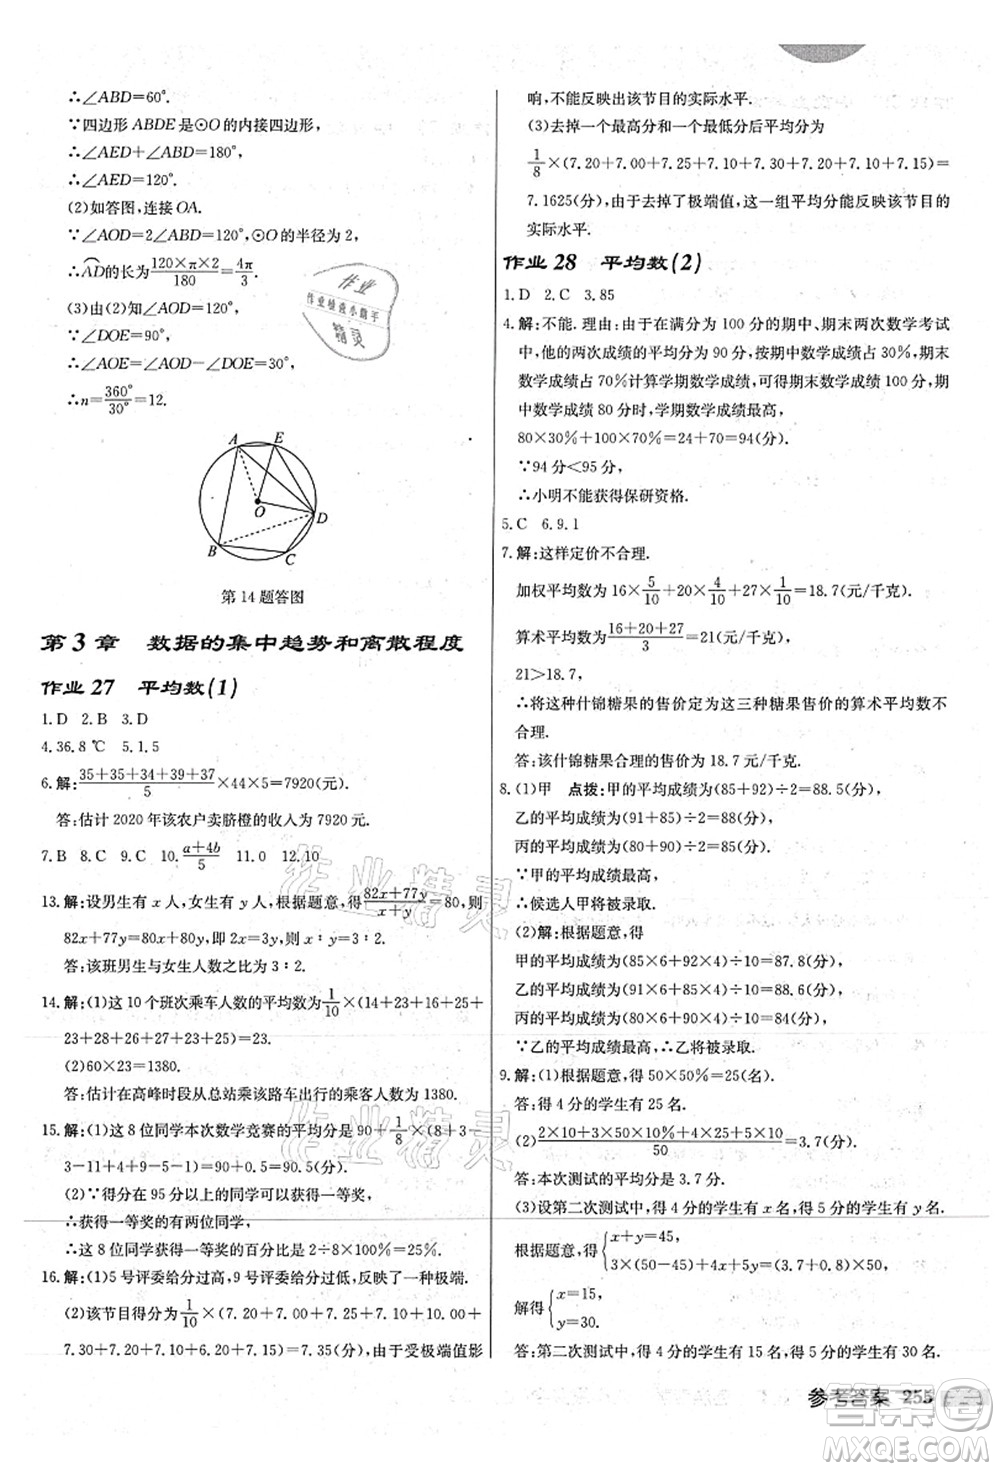 ∴∠ABD=60°.
∵四边形 ABDE 是⊙O 的内接四边形,
∴∠AED+∠ABD=180°,
∴∠AED=120°.
(2)如答图,连接 OA.
∵∠AOD=2∠ABD=120°,⊙O 的半径为 2,
∴AD的长为120×π×2/180=4π/3.
(3)由(2)知∠AOD=120°,
∵∠DOE=90°,
∴∠AOE=∠AOD−∠DOE=30°,
∴n=360°/30°=12.
A E O D B C
第 14 题答图
第 3 章 数据的集中趋势和离散程度
作业 27 平均数(1)
1.D 2.B 3.D
4.36.8 ℃ 5.1.5
6.解:35+35+34+39+37/5×44×5=7920(元).
答:估计 2020 年该农户卖脐橙的收入为 7920 元.
7.B 8.C 9.C 10.a+4b/5 11.0 12.10
13.解:设男生有 x 人,女生有 y 人,根据题意,得82x+77y/x+y=80,则
82x+77y=80x+80y,即 2x=3y,则 x∶y=3∶2.
答:该班男生与女生人数之比为 3∶2.
14.解:(1)这 10 个班次乘车人数的平均数为1/10×(14+23+16+25+
23+28+26+27+23+25)=23.
(2)60×23=1380.
答:估计在高峰时段从总站乘该路车出行的乘客人数为 1380.
15.解:(1)这 8 位同学本次数学竞赛的平均分是 90+1/8×(8+3−
3−11+4+9−5−1)=90.5(分).
(2)∵得分在 95 分以上的同学可以获得一等奖,
∴获得一等奖的有两位同学,
∴这 8 位同学获得一等奖的百分比是 2÷8×100%=25%.
16.解:(1)5 号评委给分过高,9 号评委给分过低,反映了一种极端.
(2)该节目得分为1/10×(7.20+7.00+7.25+7.10+10.00+
7.30+7.20+7.10+5.10+7.10)=7.135(分),由于受极端值影
响,不能反映出该节目的实际水平.
(3)去掉一个最高分和一个最低分后平均分为
1/8×(7.20+7.00+7.25+7.10+7.30+7.20+7.10+7.15)=
7.1625(分),由于去掉了极端值,这一组平均分能反映该节目的
实际水平.
作业 28 平均数(2)
1.D 2.C 3.85
4.解:不能. 理由:由于在满分为 100 分的期中、期末两次数学考试
中,他的两次成绩的平均分为 90 分,按期中数学成绩占 30%,期末
数学成绩占 70%计算学期数学成绩,可得期末数学成绩 100 分,期
中数学成绩 80 分时,学期数学成绩最高,
80×30%+100×70%=24+70=94(分).
∵94 分<95 分,
∴小明不能获得保研资格.
5.C 6.9.1
7.解:这样定价不合理.
加权平均数为 16×5/10+20×4/10+27×1/10=18.7(元/千克).
算术平均数为16+20+27/3=21(元/千克).
21>18.7.
∴将这种什锦糖果的售价定为这三种糖果售价的算术平均数不
合理.
答:该什锦糖果合理的售价为 18.7 元/千克.
8.(1)甲 点拨:甲的平均成绩为(85+92)÷2=88.5(分),
乙的平均成绩为(91+85)÷2=88(分),
丙的平均成绩为(80+90)÷2=85(分),
∵甲的平均成绩最高,
∴候选人甲将被录取.
(2)解:根据题意,得
甲的平均成绩为(85×6+92×4)÷10=87.8(分),
乙的平均成绩为(91×6+85×4)÷10=88.6(分),
丙的平均成绩为(80×6+90×4)÷10=84(分),
∵乙的平均成绩最高,∴乙将被录取.
9.解:(1)根据题意,得 50×50%=25(名).
答:得 4 分的学生有 25 名.
(2)2×10+3×50×10%+4×25+5×10/50=3.7(分).
答:本次测试的平均分是 3.7 分.
(3)设第二次测试中,得 4 分的学生有 x 名,得 5 分的学生有 y 名,
根据题意,得{x+y=45, 3×5+4x+5y=(3.7+0.8)×50,
解得{x=15, y=30.
答:第二次测试中,得 4 分的学生有 15 名,得 5 分的学生有 30 名.
参考答案 255
作业精灵
作业精灵
作业
精灵
答案圈
MXQE.COM